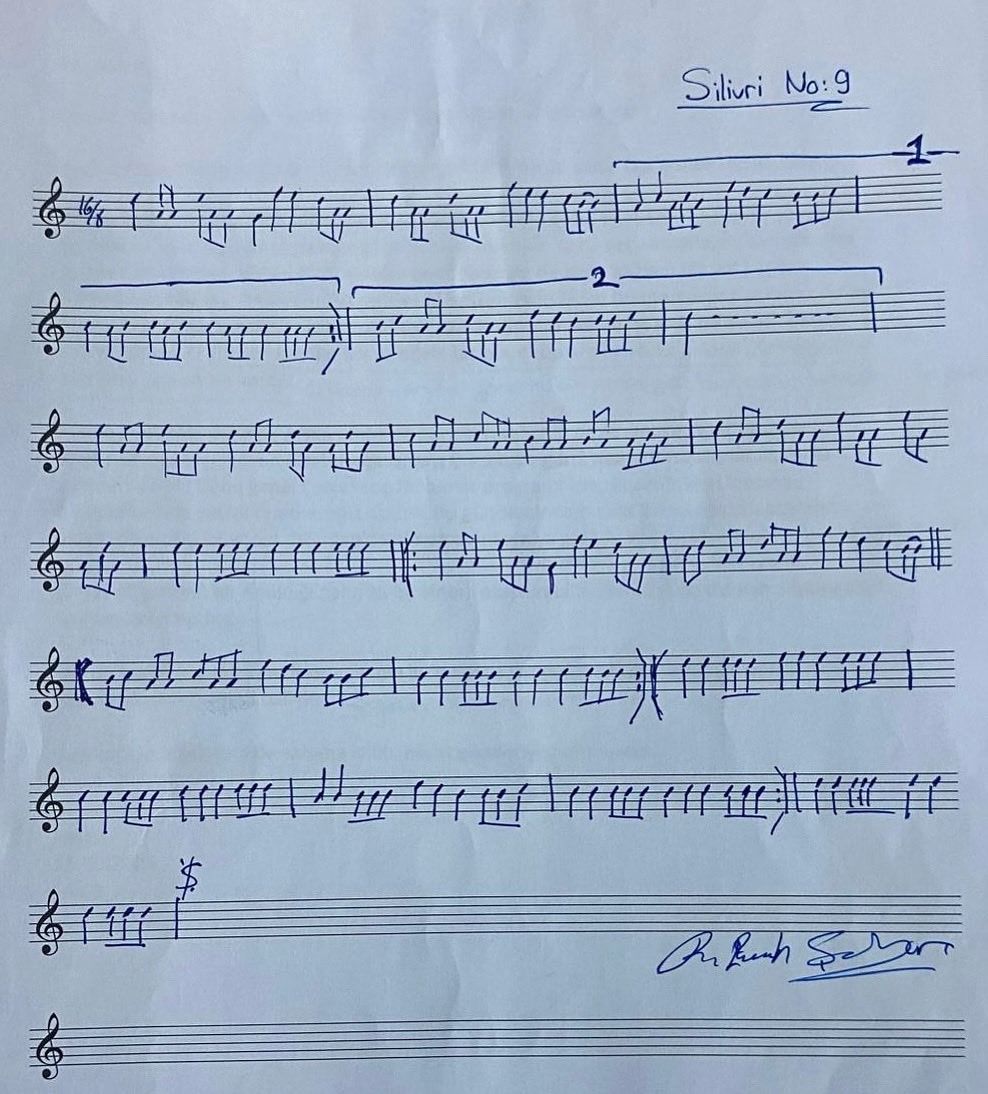 Silivri No:9
1
16/8
2